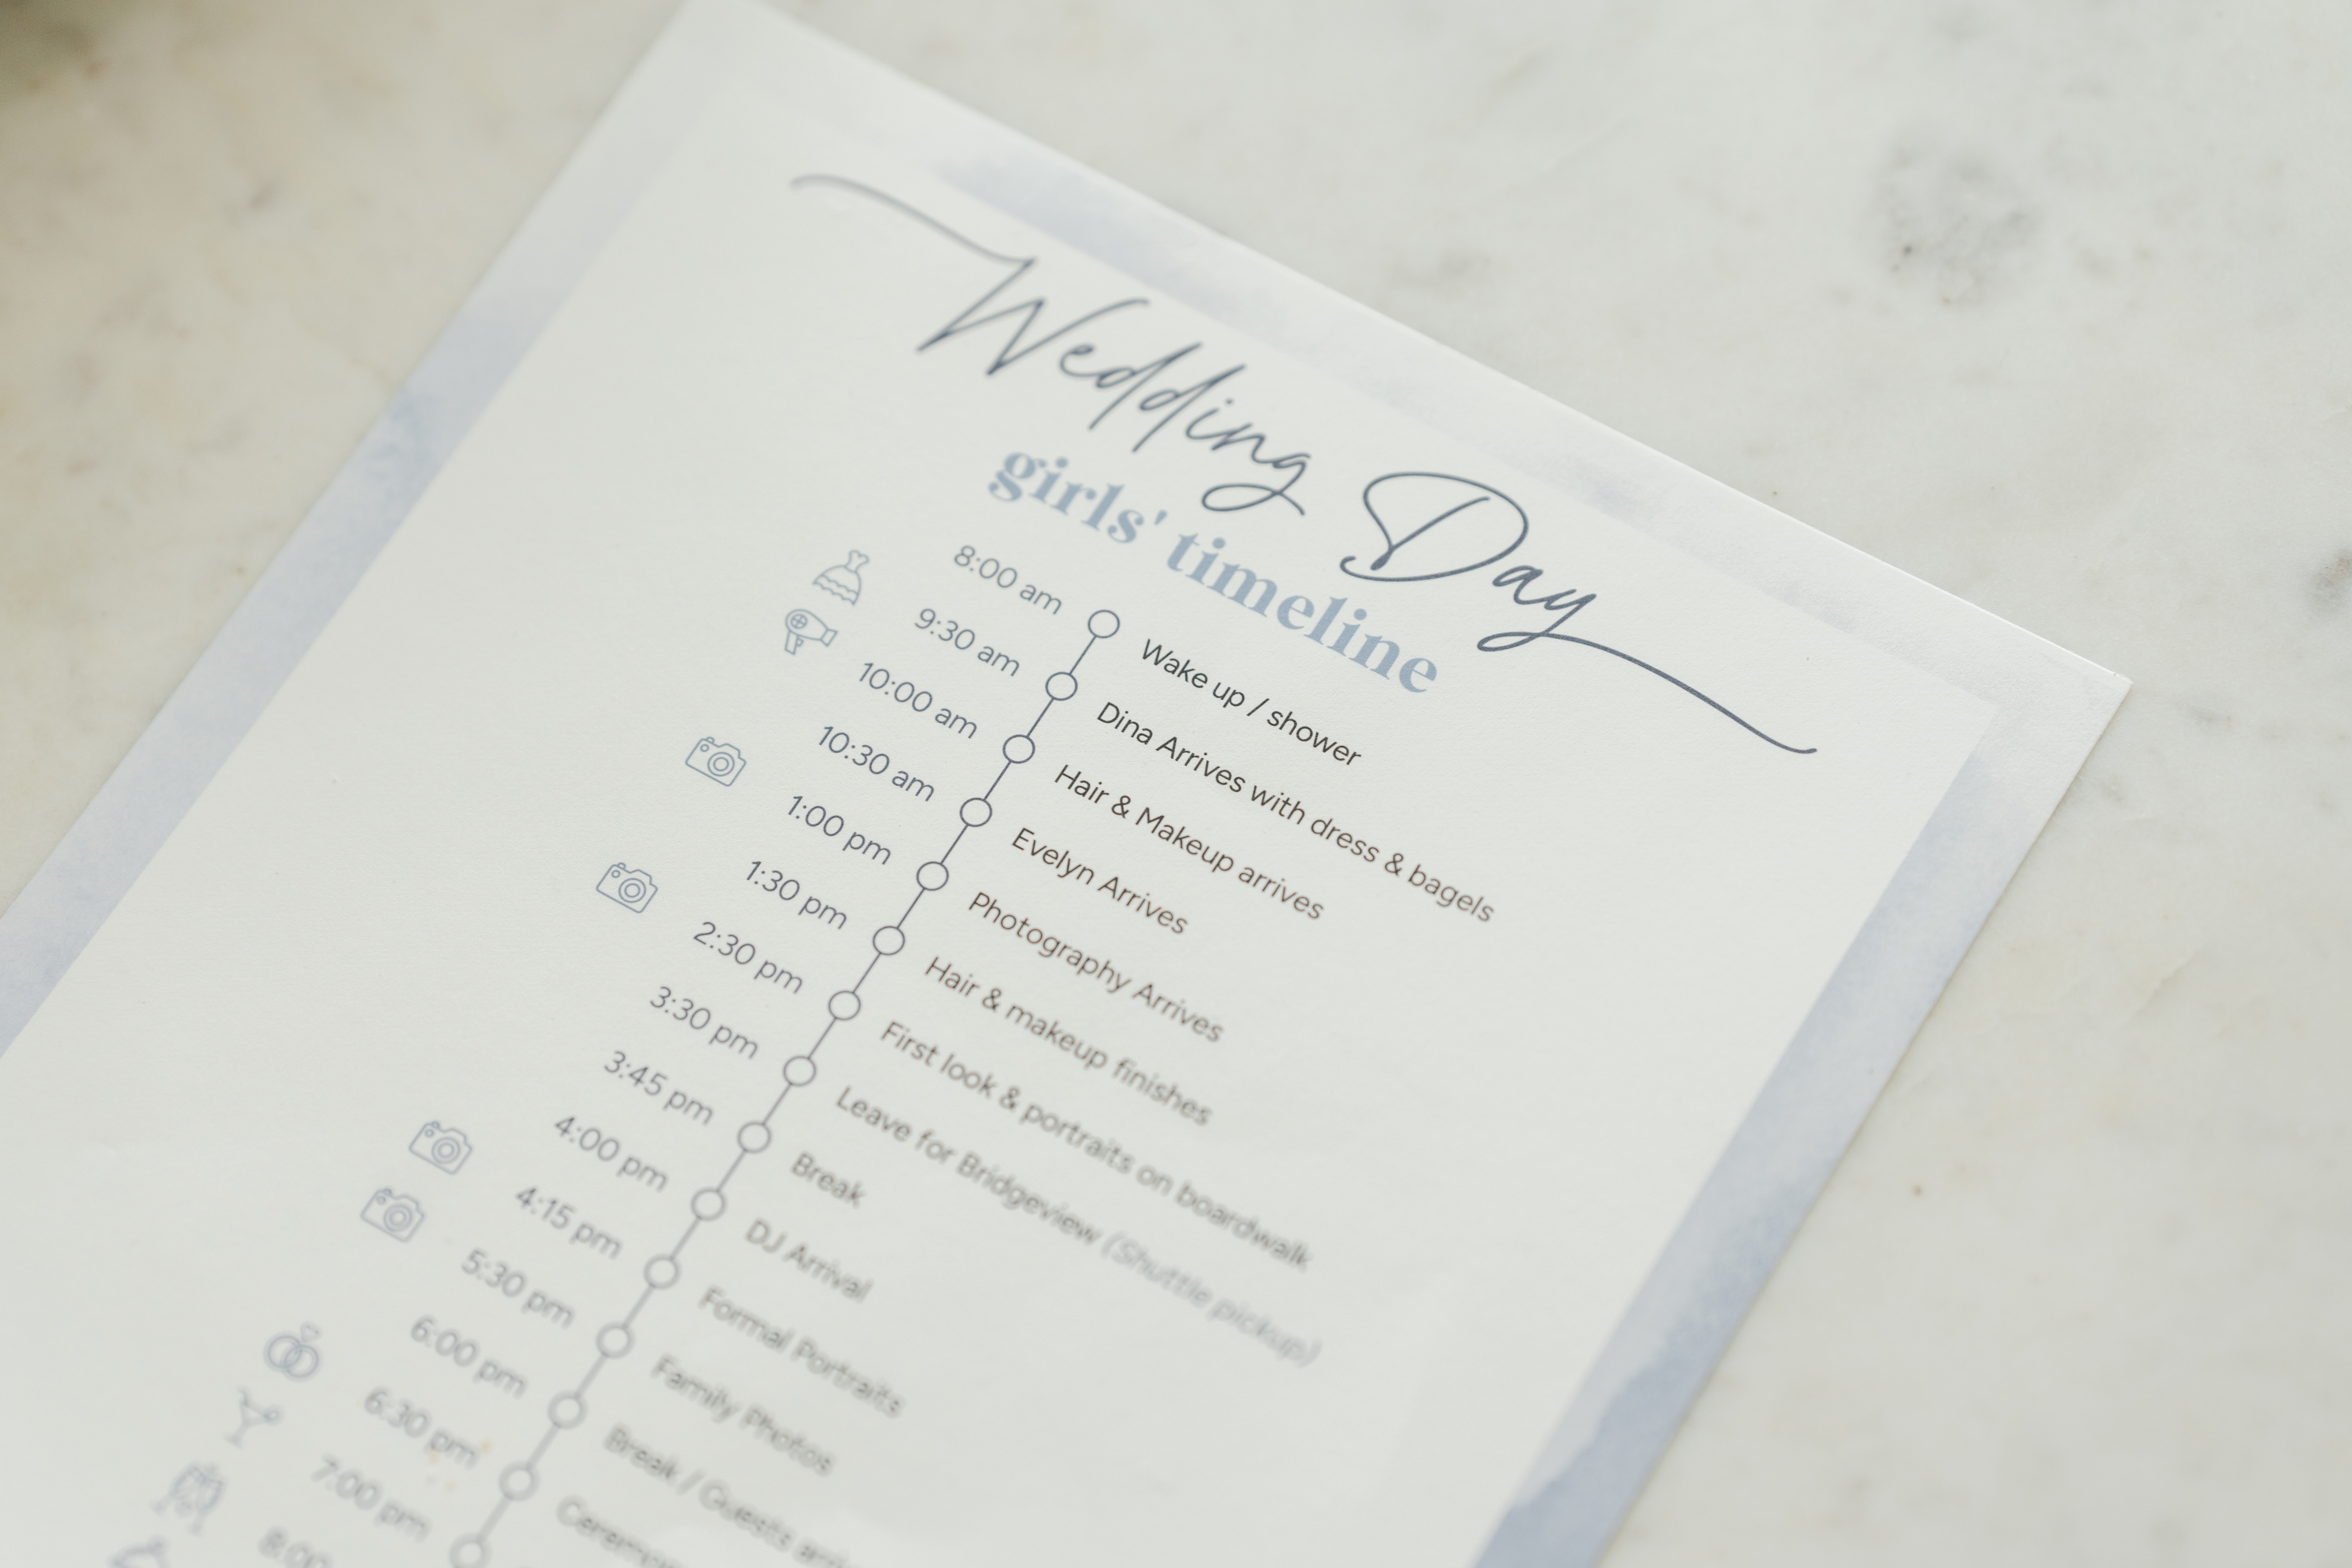 Wedding Day
girls' timeline
8:00 am Wake up / shower
9:30 am Dina Arrives with dress & bagels
10:00 am Hair & Makeup arrives
10:30 am Evelyn Arrives
1:00 pm Photography Arrives
1:30 pm Hair & makeup finishes
2:30 pm First look & portraits on boardwalk
3:30 pm Leave for Bridgeview (Shuttle pickup)
3:45 pm Break
4:00 pm DJ Arrival
4:15 pm Formal Portraits
5:30 pm Family Photos
6:00 pm Break / Guests
6:30 pm
7:00 pm
8:00